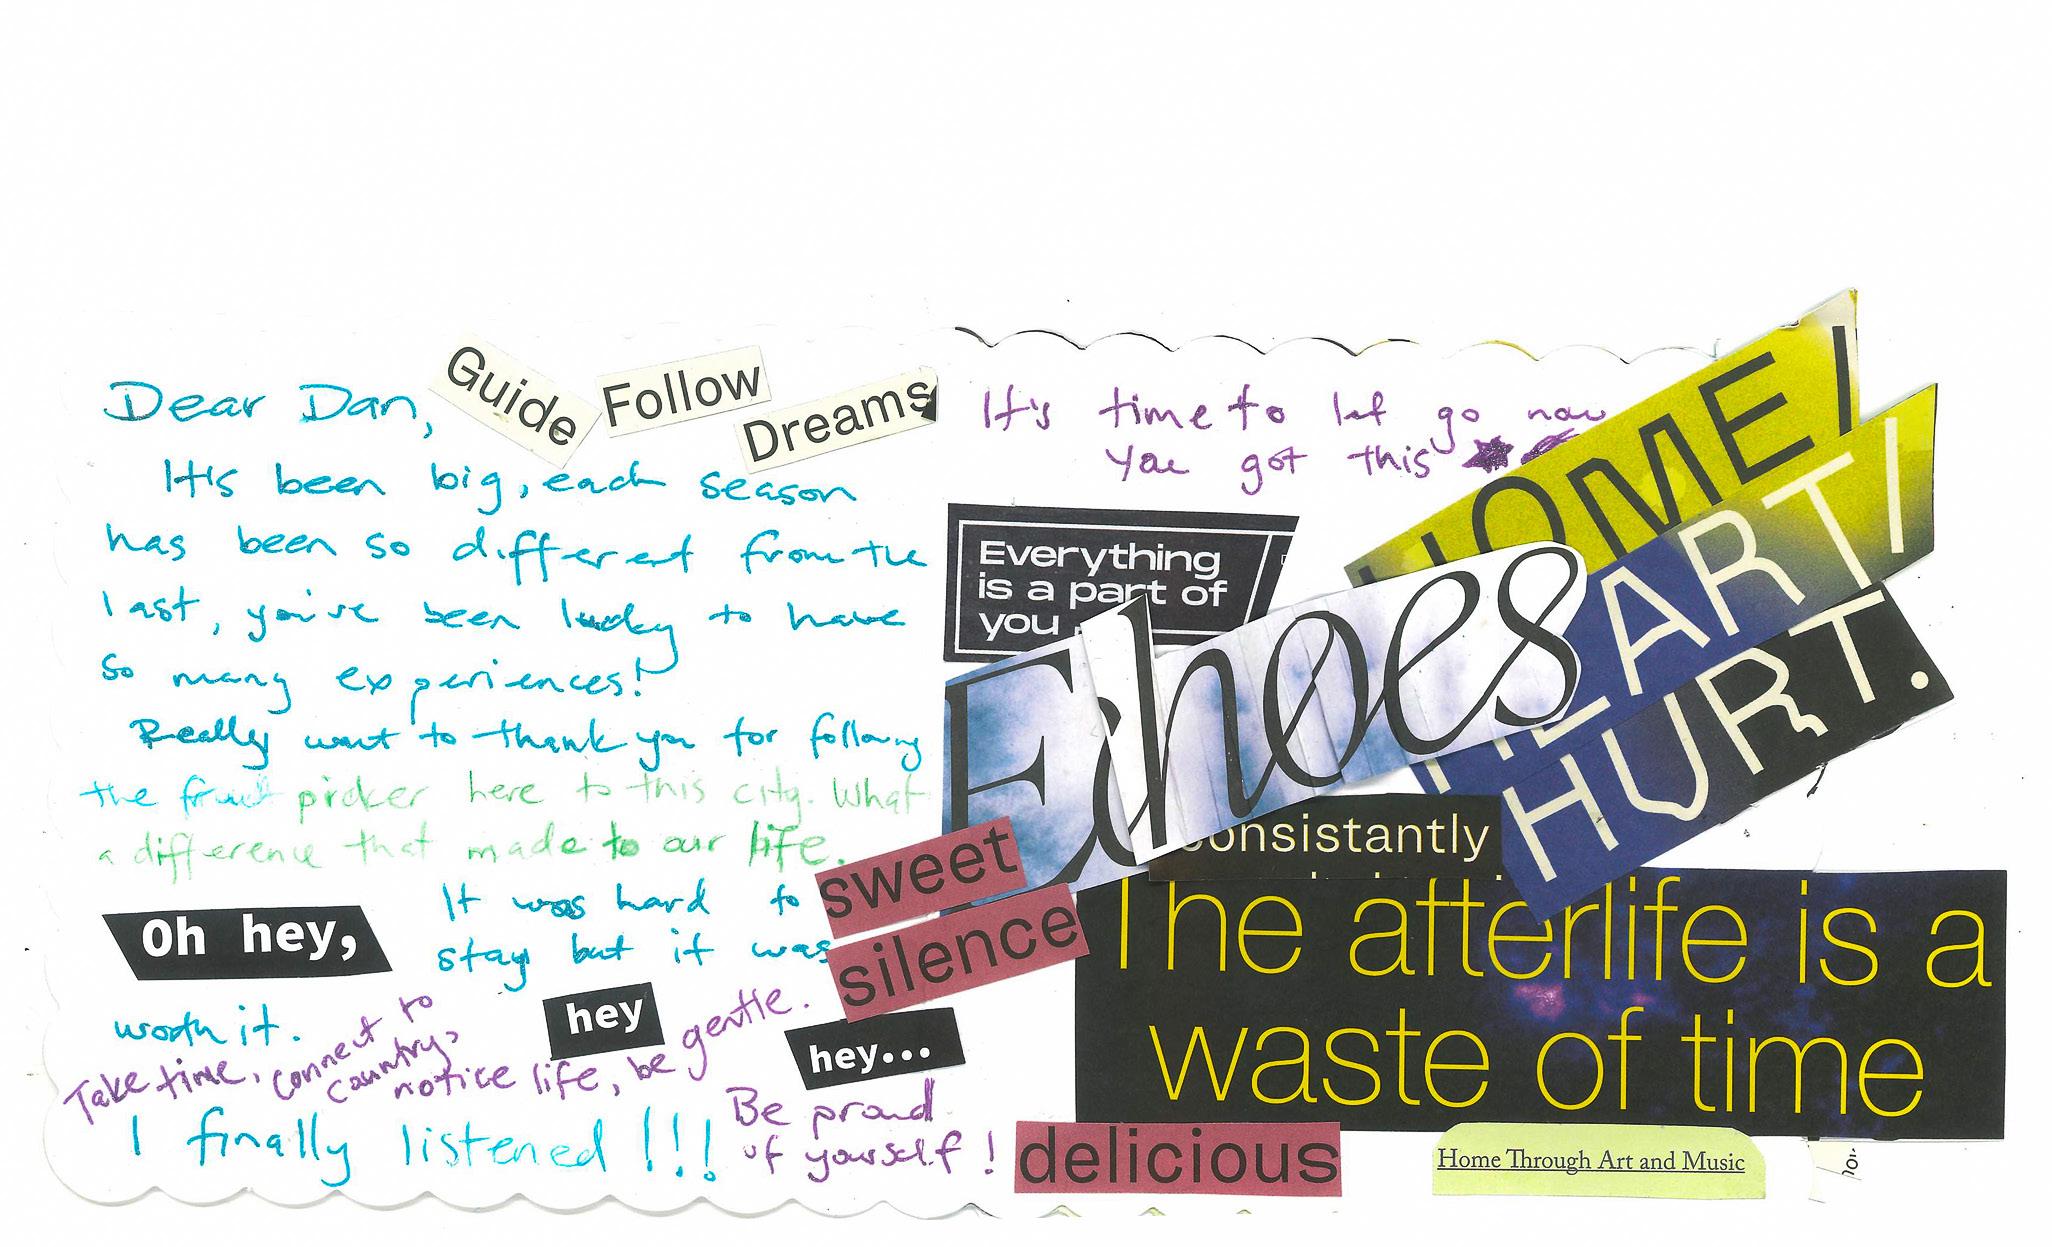 Dear Dan,
Guide
Follow
Dreams
It's been big, each season
has been so different from the
last, you've been lucky to have
so many experiences!
Really want to thank you for following
the fruit picker here to this city. What
a difference that made to our life.
Oh hey,
It was hard to
stay but it was
worth it.
hey
hey...
Take time, connect to
country,
notice life, be gentle.
I finally listened!!!
Be proud
of yourself!
sweet
silence
delicious
It's time to let go now
You got this
Everything
is a part of
you
Echoes
HOME/
HEART/
HURT.
consistantly
The afterlife is a
waste of time
Home Through Art and Music